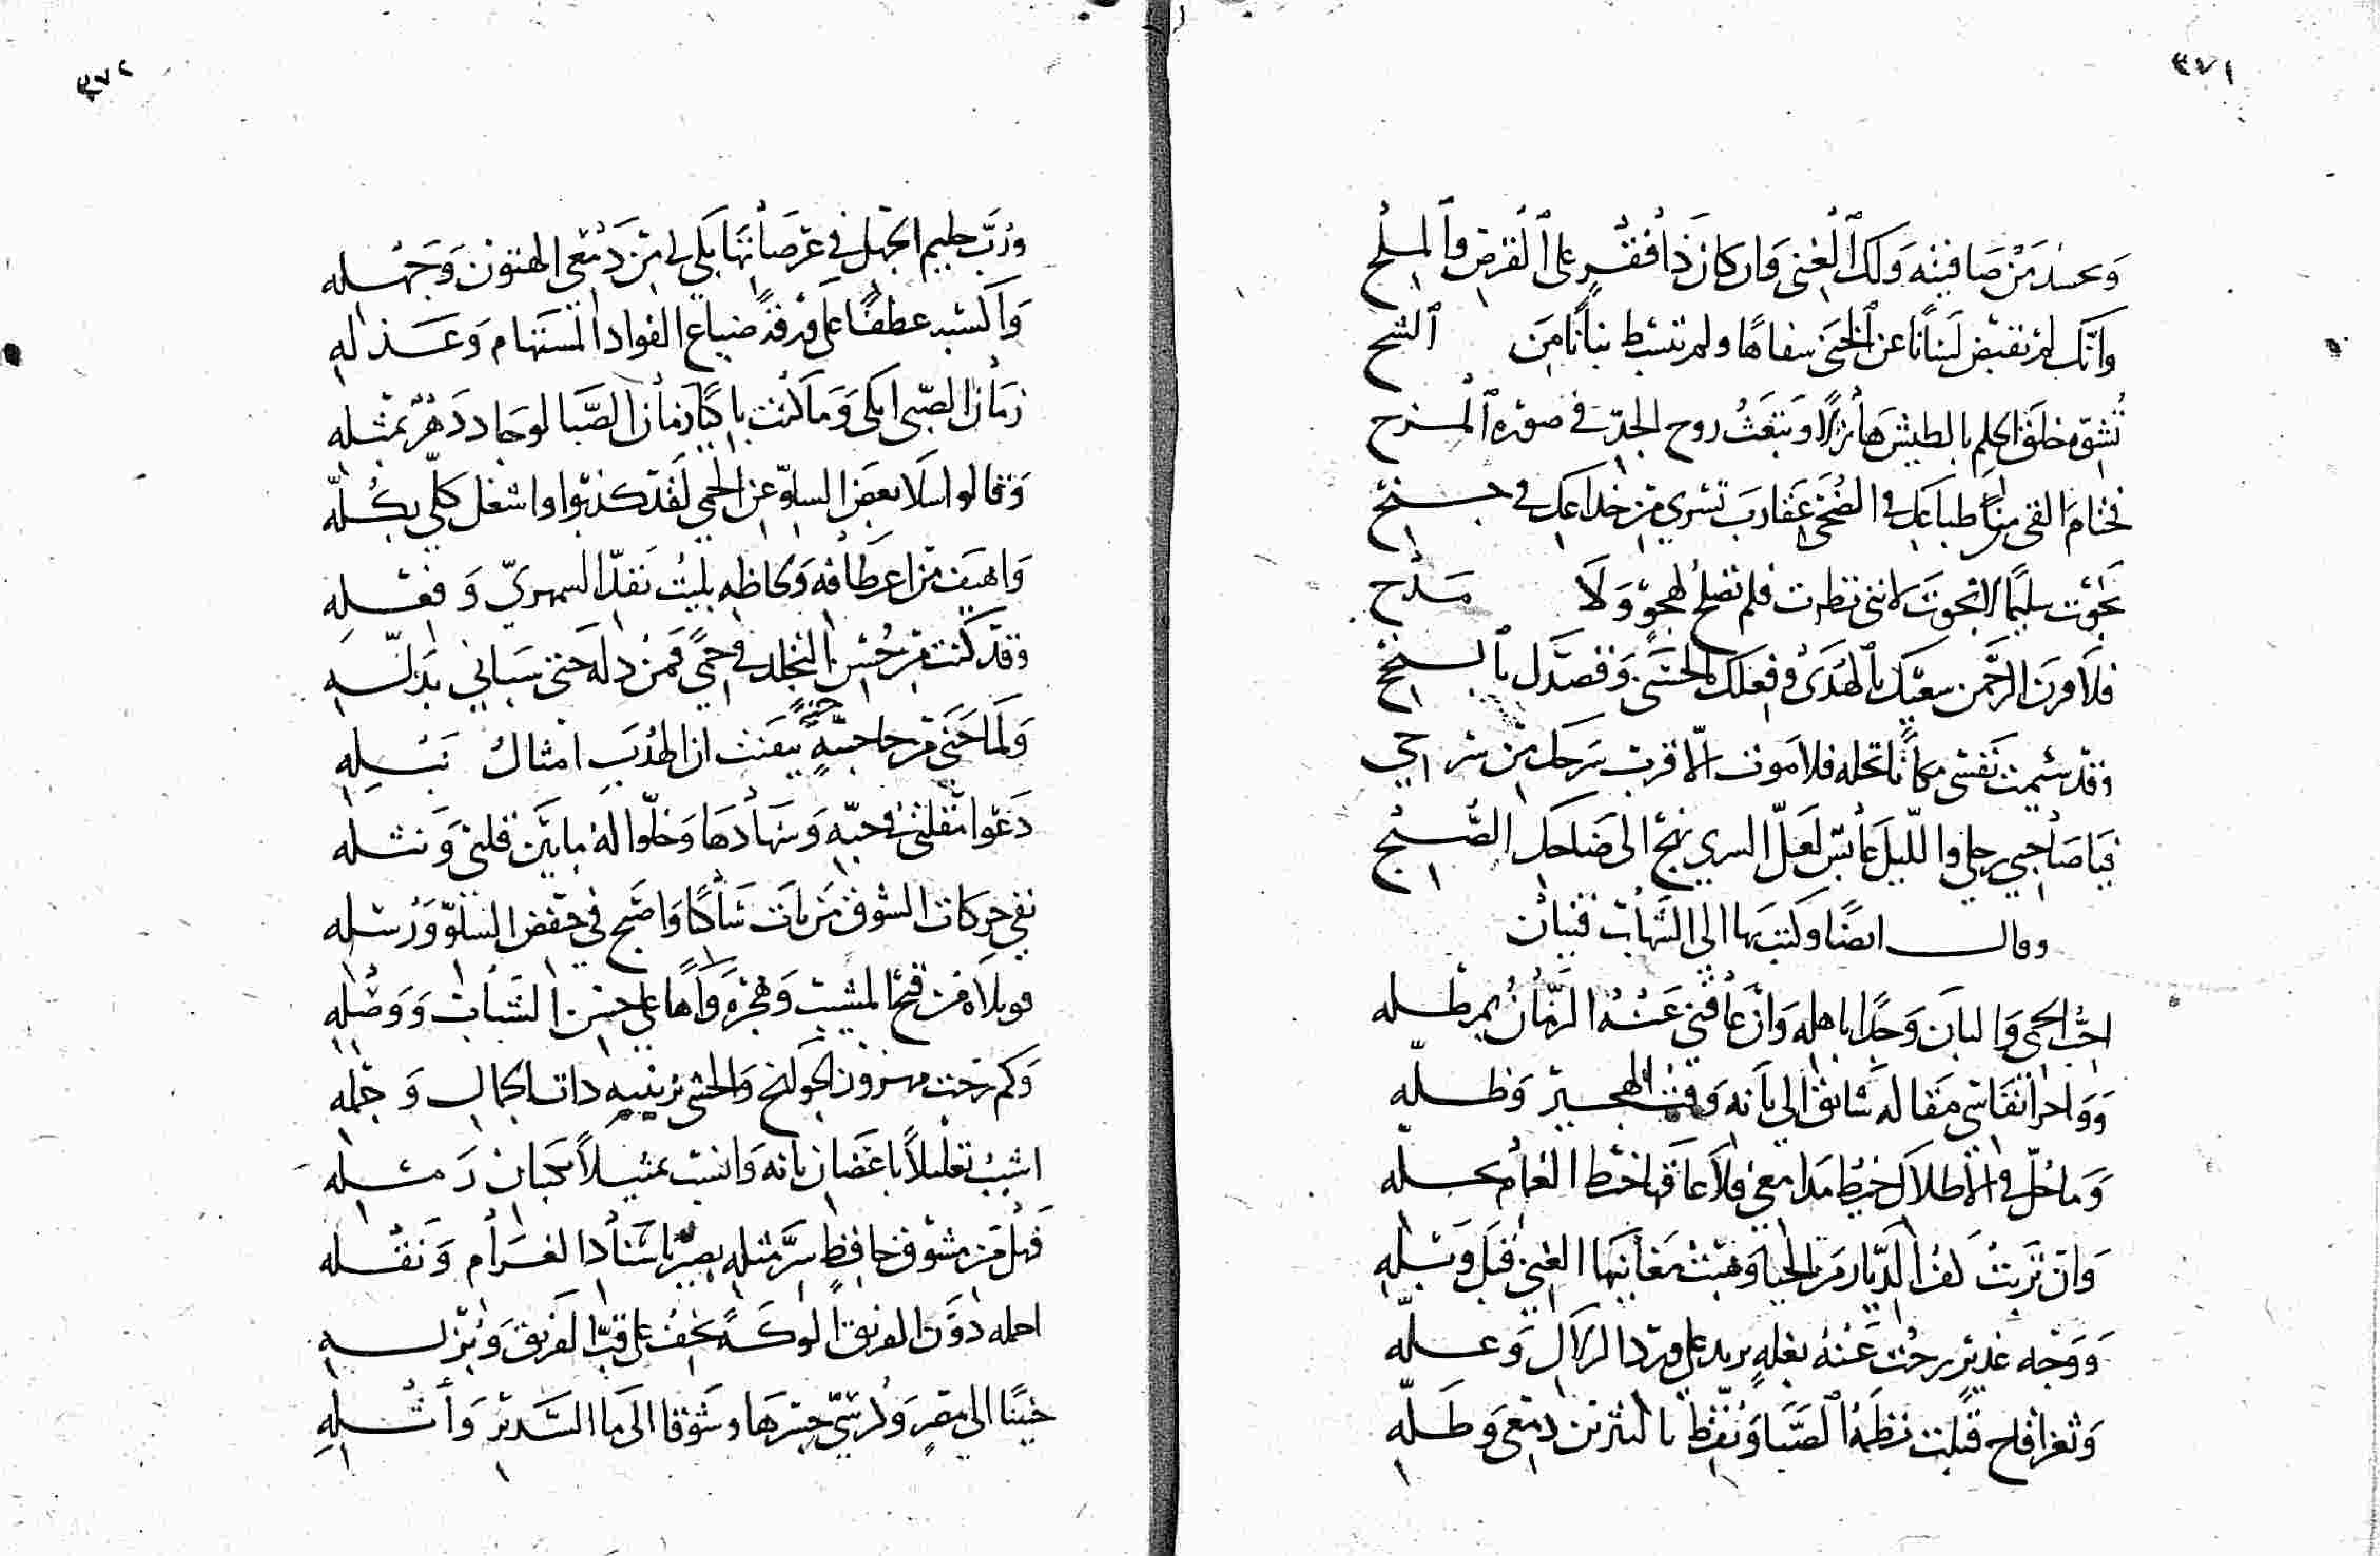 ٤٧١
وتحسد من صافيته ولك الغنى وان كان ذا فقر على القرض والملح
وانك لم تقبض لسانا عن الخنى سفاها ولم تبسط بنانا من الشح
تشوه خلق الحلم بالطيش هازلا وتبعث روح الجد في صورة المزح
طباعك في الضحى عقارب تسري من خداعك في جنح
نجوت سليما لا نجوت لانني نظرت فلم تصلح لهجو ولا مدح
فلا قرن الرحمن سعيك بالهدى وفعلك بالحسنى وقصدك بالنجح
وقد سئمت نفسي مكانا تحله فلا موت الا قرب سرحك من سرحي
فيا صاحبي رحلي والليل عابس لعل السرى نهج الى ضاحك الصبح
وقال ايضا وكتب بها الى الشهاب فتيان
احب الحمى والبان وجدا باهله وان عاقني عنه الزمان بمطله
وواحر انفاسي مقالة شائق الى بانه وقت الهجير وظله
وما حل في الاطلال خيط مدامعي فلا عاقها خيط الغمام بحله
وان تربت كف الديار من الحيا وهبت مغانيها الغنى قبل وبله
ووجه غدير رحت عنه بغلة يزيد على برد الزلال وعله
وثغر اقاح قبلت نظمه الصبا ونقط بالنثر من دمعي وطله
٤٧٢
ورب حليم الجهل في عرصاتها بكى لي من دمعي الهتون وجهله
واكسبه عطفا على ورقة ضياع الفواد المستهام وعذله
زمان الصبى ابكى وما كنت باكيا زمان الصبا لو جاد دهر بمثله
وقالوا اسلا بعض السلو عن الحمى لقد كذبوا واشغل كلي بكله
واهيف من اعطافه ولحاظه بليت بقد السمهري وفعله
وقد كنت من حسن التجلد في حمى فمن دله حتى سباني بدله
ولما حنى من حاجبيه حنية تيقنت ان الهدب امثال نبله
دعوا مقلتي في حبه وسهادها وخلوا له ما بين قلبي ونبله
نفى حركات الشوق من بات ساكنا واصبح في خفض السلو ورسله
فويلاه من قبح المشيب وهجره وواها على حسن الشباب ووصله
وكم رحت مهزوز الجوانح والحشى بزينبه ذات الجمال وجمله
اشبب تعليلا باغصان بانه وانسب تمثيلا بكثبان رمله
فهل من مشوق حافظ سر مثله بصير باسناد الغرام ونقله
احمله دون الفريق الوكة تخف على قب الفريق وبزله
حنينا الى مصر وكرسي جسرها وشوقا الى ما السدير وأثله